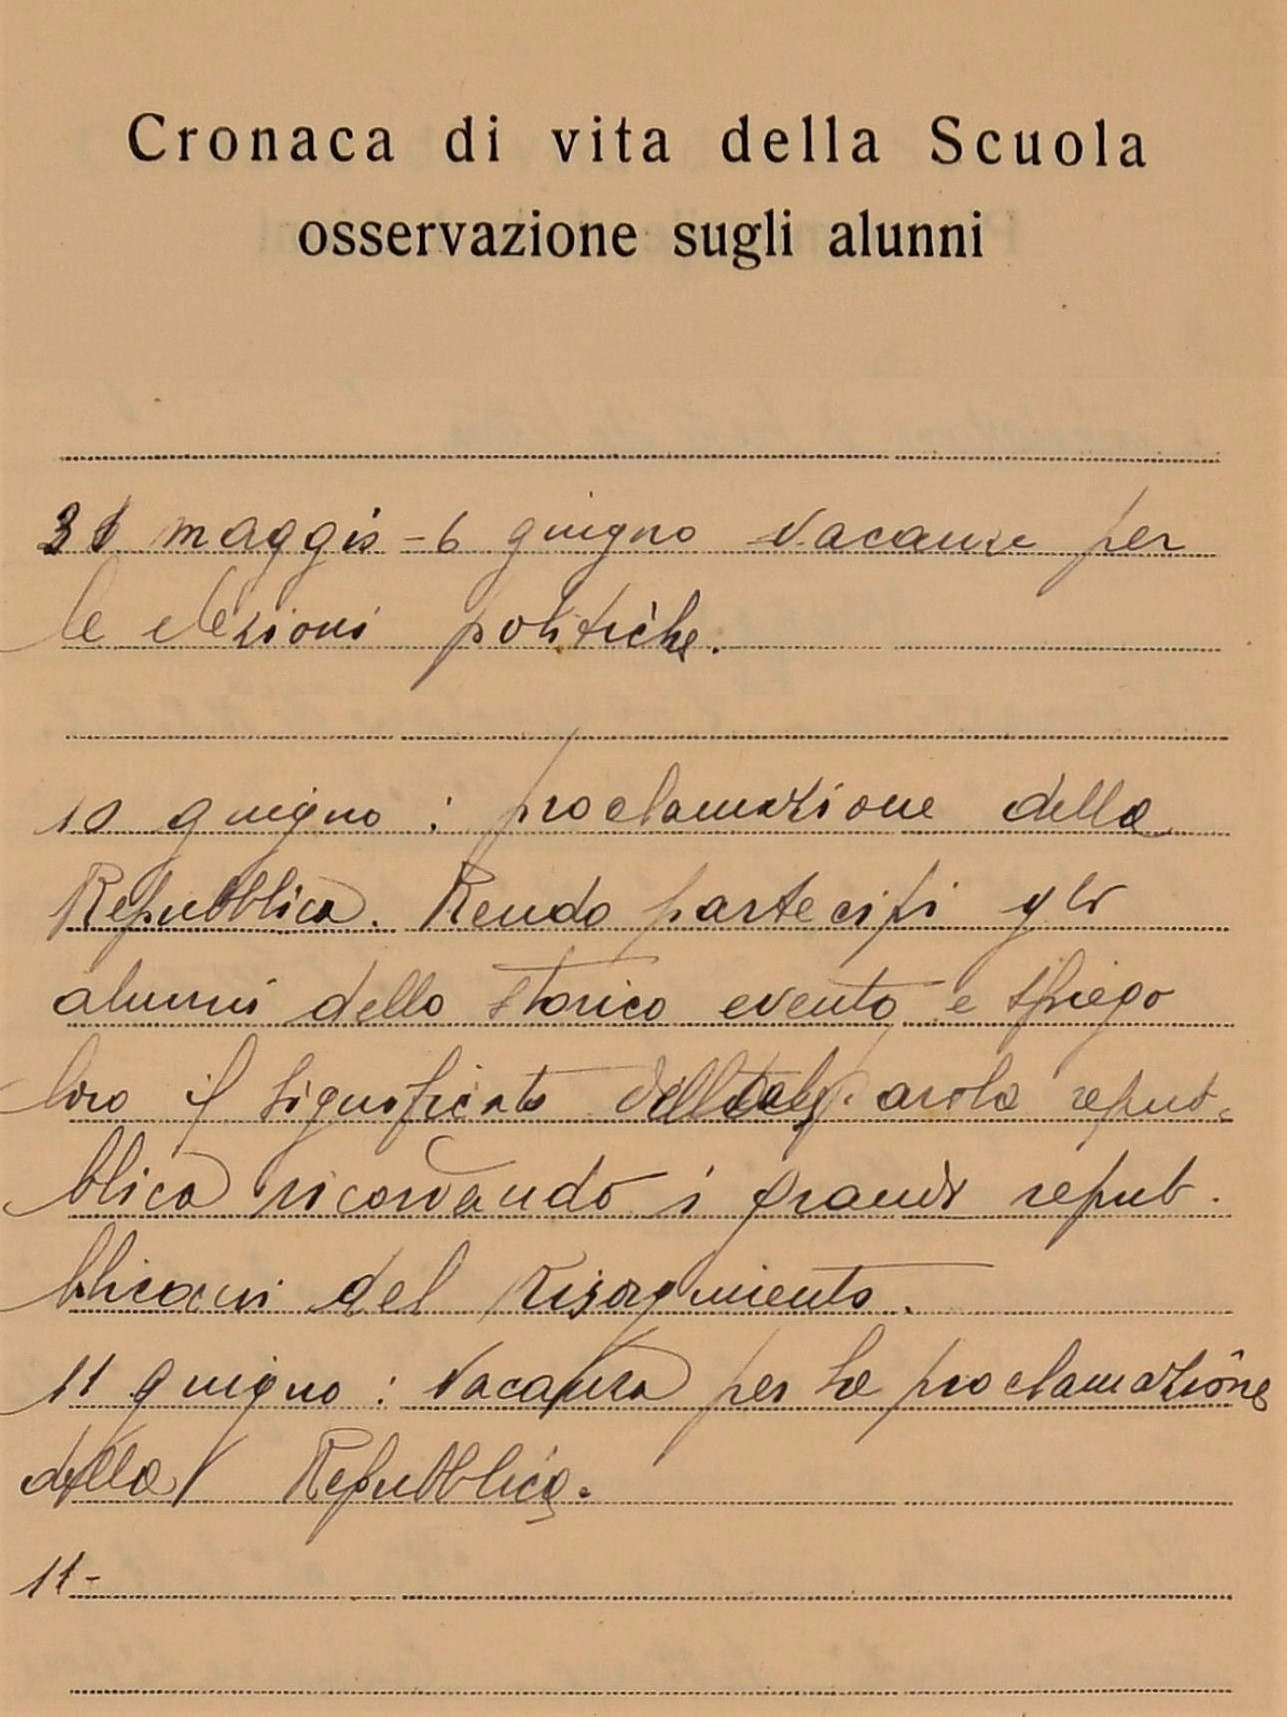 Cronaca di vita della Scuola
osservazione sugli alunni
31 maggio - 6 giugno vacanze per
le elezioni politiche.
10 giugno : proclamazione della
Repubblica. Rendo partecipi gli
alunni dello storico evento e spiego
loro il significato della parola repub-
blica ricordando i grandi repub-
blicani del Risorgimento.
11 giugno : Vacanza per la proclamazione
della Repubblica.
11-